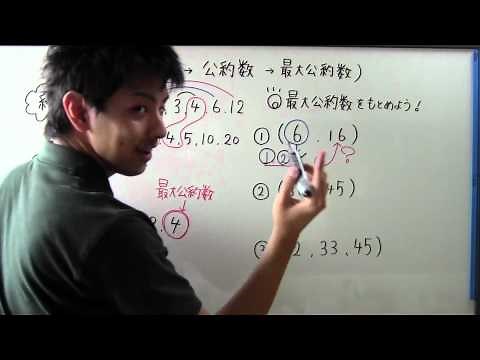 → 公約数 → 最大公約数)
3,4,6,12
4,5,10,20
最大公約数
4
最大公約数をもとめよう!
① (6,16)
① ② ?
② 45)
③ 2,33,45)